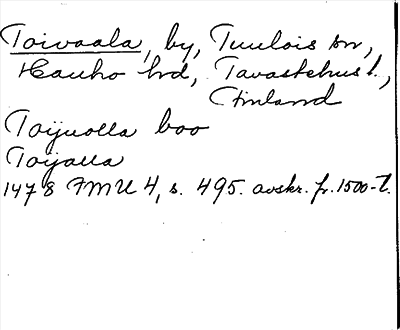 Toivaala, by, Tuulois sn,
Hauho hd, Tavastehus l.,
Finland
Toijuolla boo
Toijalla
1478 FMU 4, s. 495. avskr. fr. 1500-t.